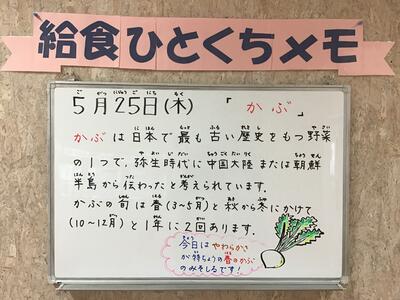 給食ひとくちメモ
5月25日(木) 「かぶ」
かぶは日本で最も古い歴史をもつ野菜
の1つで、弥生時代に中国大陸または朝鮮
半島から伝わったと考えられています。
かぶの旬は春(3～5月)と秋から冬にかけて
(10～12月)と1年に2回あります。
今日はやわらかさ
が特ちょうの春のかぶ
のみそしるです!